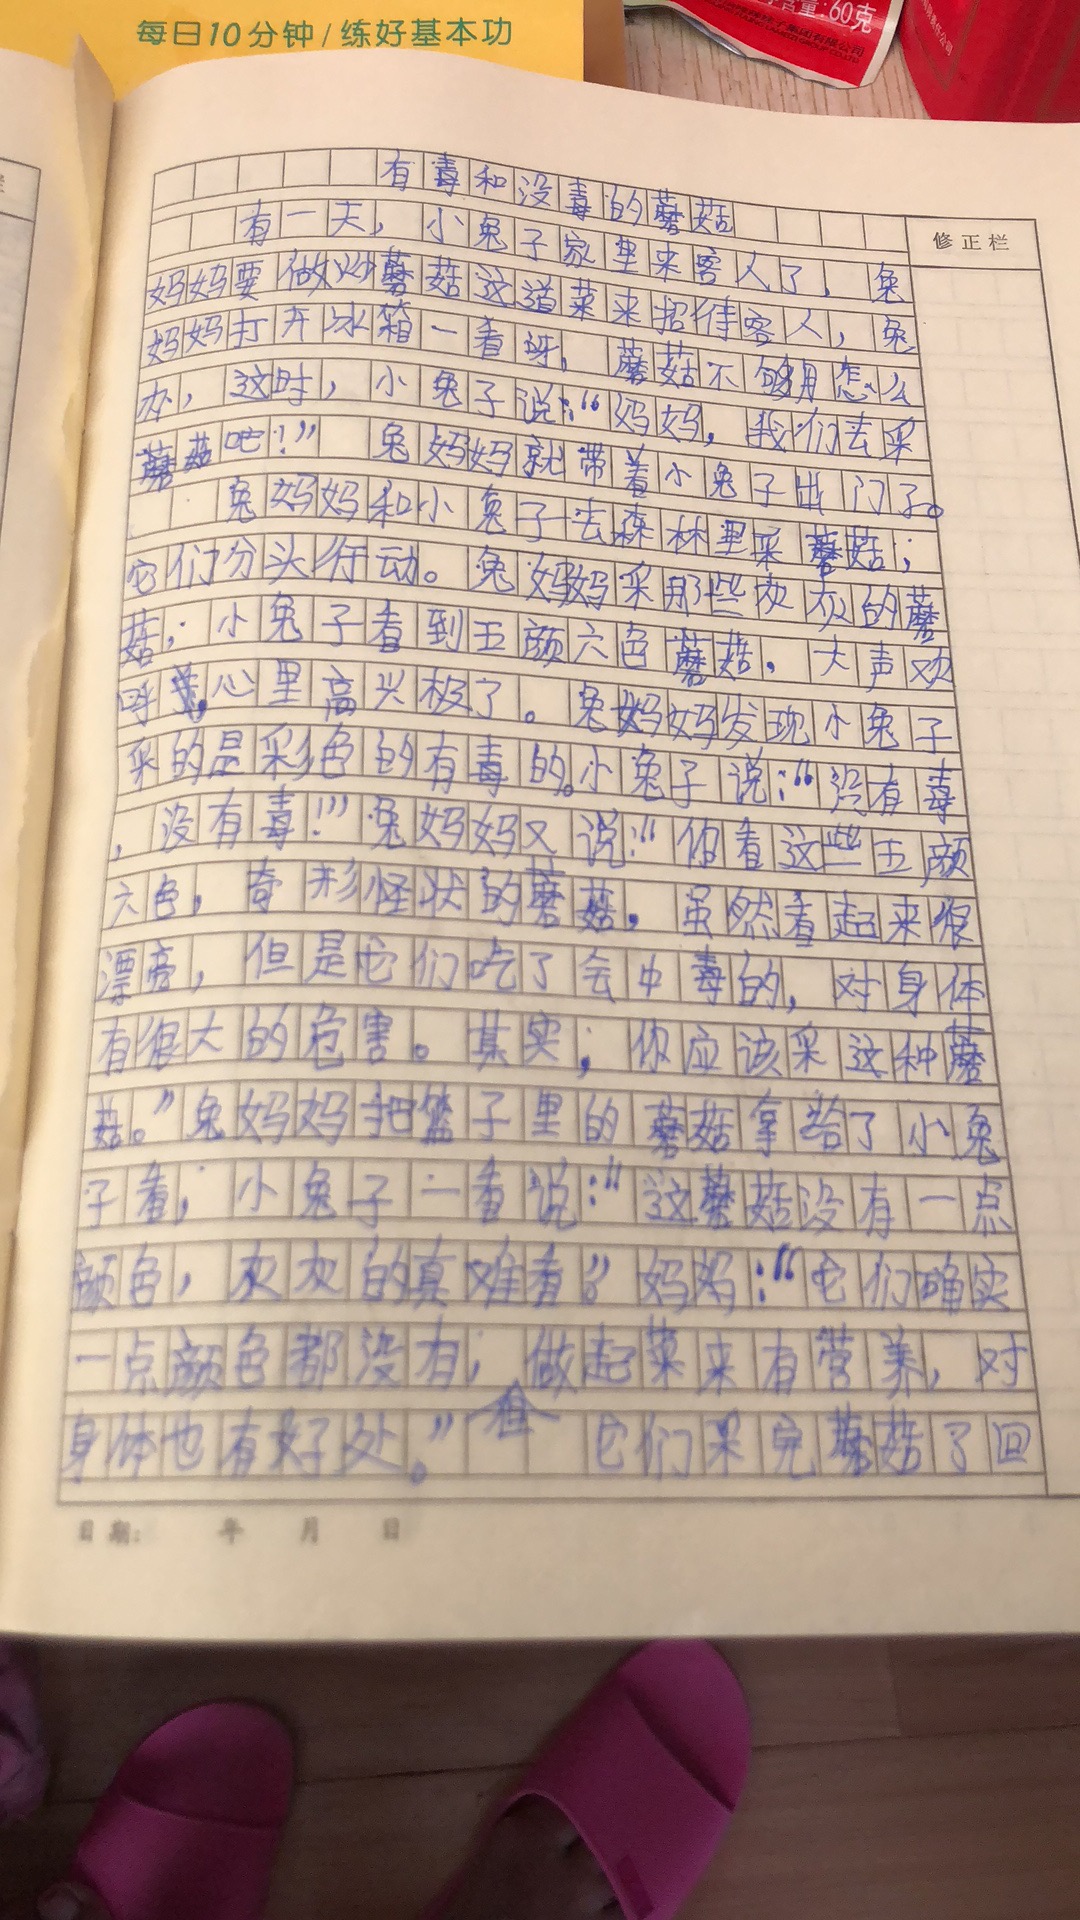 每日10分钟/练好基本功
含量:60克
修正栏
有毒和没毒的蘑菇
有一天，小兔子家里来客人了，兔
妈妈要做炒蘑菇这道菜来招待客人，兔
妈妈打开冰箱一看呀，蘑菇不够用怎么
办，这时，小兔子说：“妈妈，我们去采
蘑菇吧！”兔妈妈就带着小兔子出门了。
兔妈妈和小兔子去森林里采蘑菇；
它们分头行动。兔妈妈采那些灰灰的蘑
菇；小兔子看到五颜六色蘑菇。大声欢
呼，心里高兴极了。兔妈妈发现小兔子
采的是彩色的有毒的。小兔子说：“没有毒
，没有毒！”兔妈妈又说：“你看这些五颜
六色，奇形怪状的蘑菇。虽然看起来很
漂亮，但是它们吃了会中毒的，对身体
有很大的危害。其实；你应该采这种蘑
菇。”兔妈妈把篮子里的蘑菇拿给了小兔
子看；小兔子一看说：“这蘑菇没有一点
颜色，灰灰的真难看。”妈妈：“它们确实
一点颜色都没有；做起菜来有营养，对
身体也有好处。”它们采完蘑菇了回
日期: 年 月 日